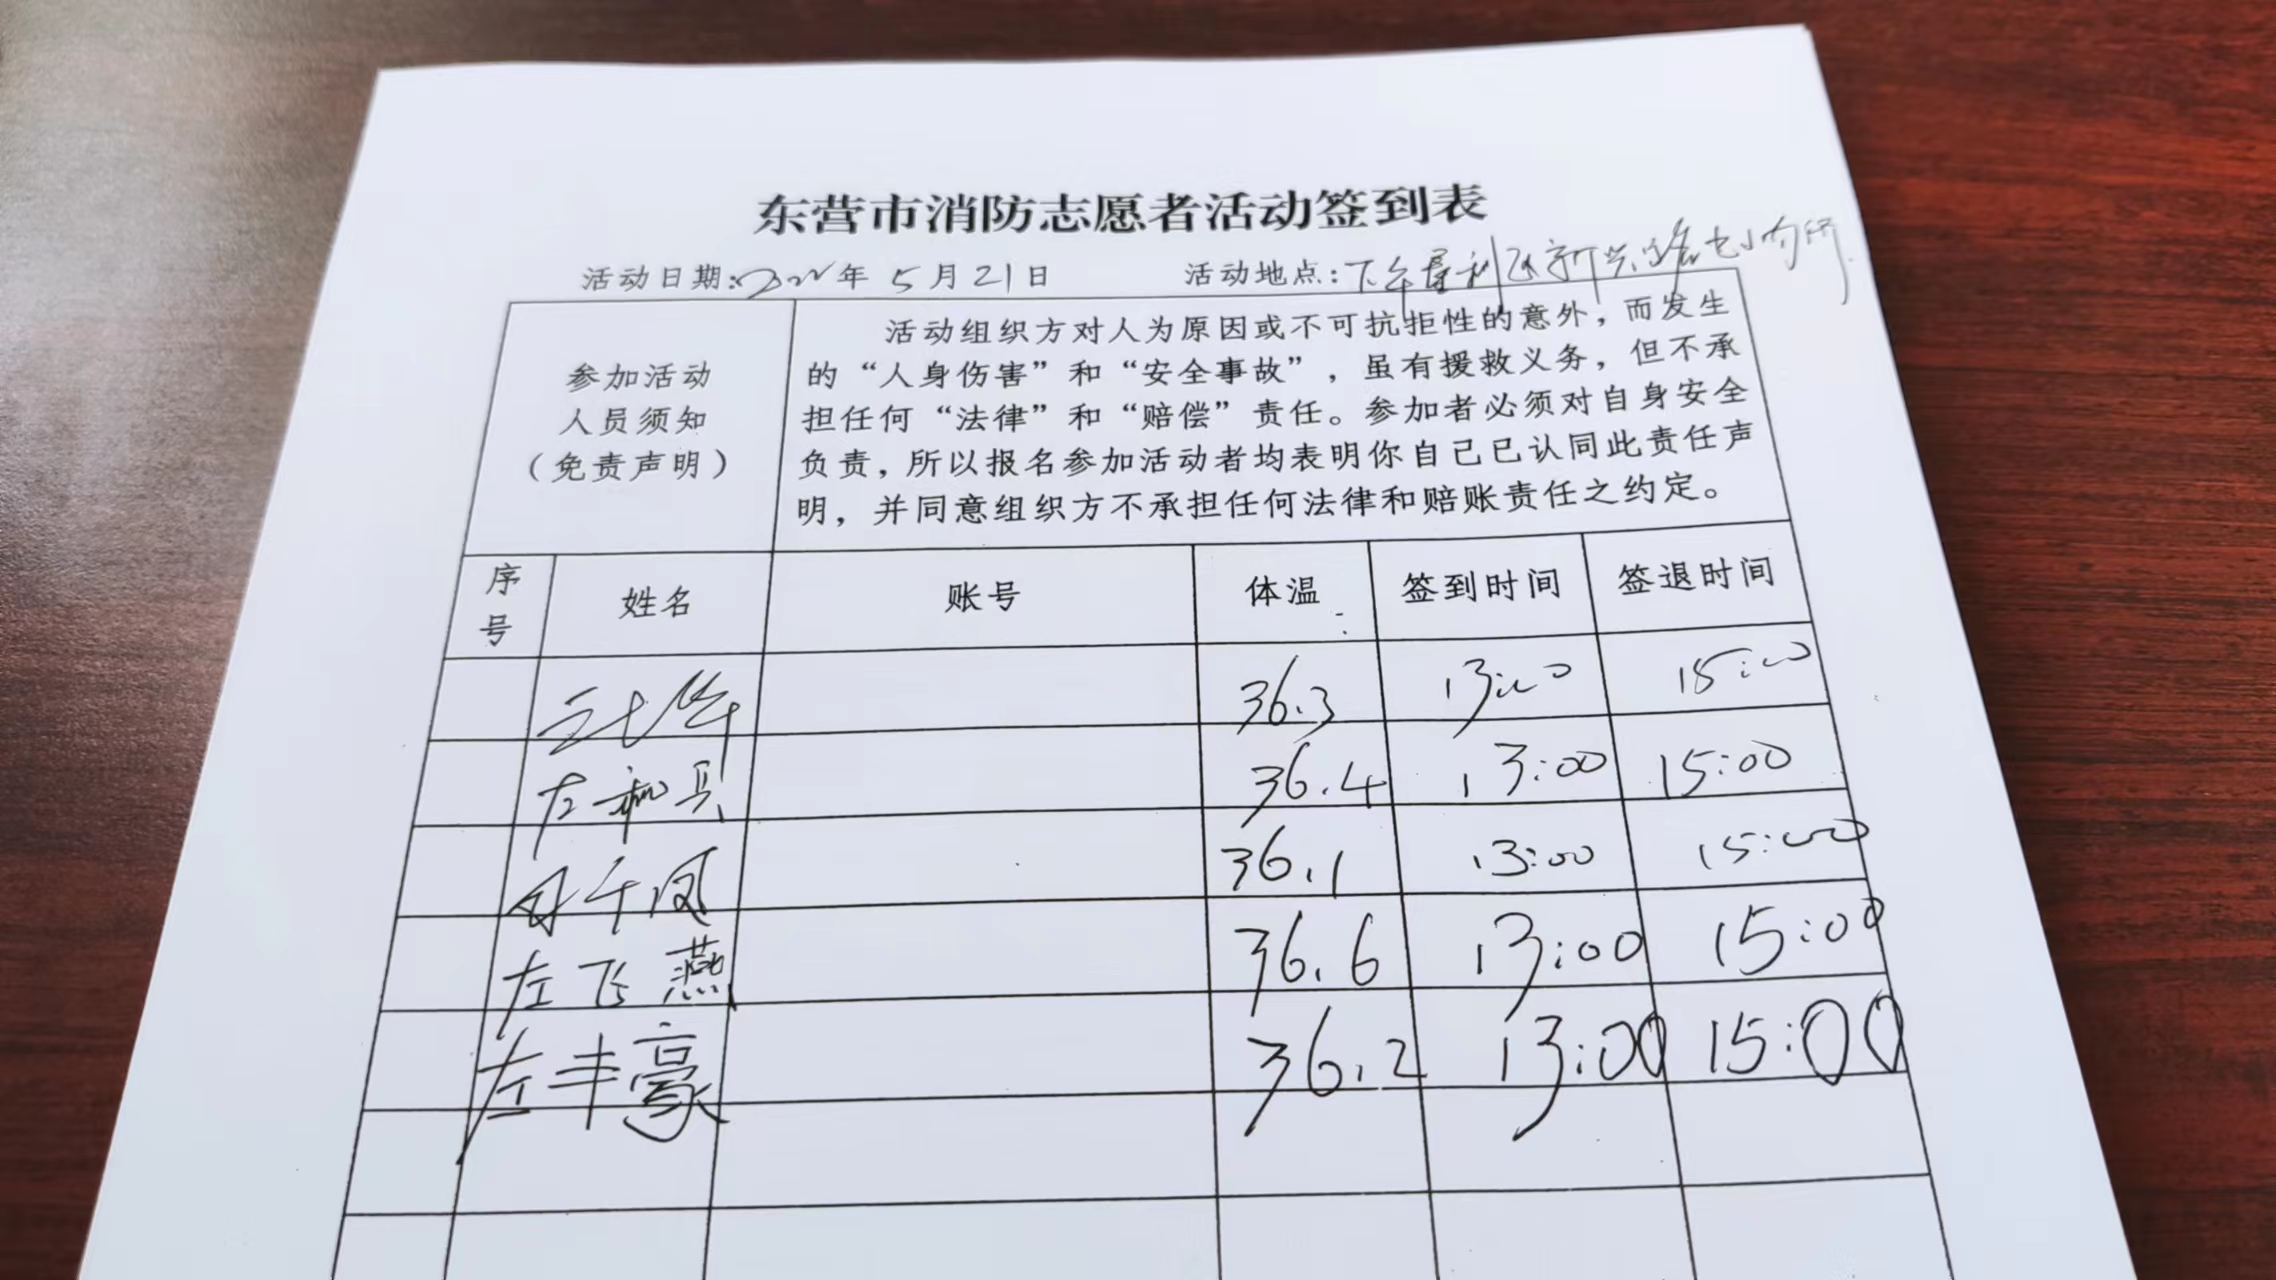 东营市消防志愿者活动签到表
活动日期:2022年5月21日 活动地点:下午垦利区新兴路
参加活动
人员须知
(免责声明)
活动组织方对人为原因或不可抗拒性的意外,而发生
的“人身伤害”和“安全事故”,虽有援救义务,但不承
担任何“法律”和“赔偿”责任。参加者必须对自身安全
负责,所以报名参加活动者均表明你自己已认同此责任声
明,并同意组织方不承担任何法律和赔账责任之约定。
序号 姓名 账号 体温 签到时间 签退时间
36.3 13:00 15:00
左 36.4 13:00 15:00
36.1 13:00 15:00
左飞燕 36.6 13:00 15:00
左丰豪 36.2 13:00 15:00